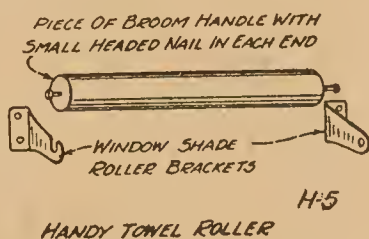 PIECE OF BROOM HANDLE WITH
SMALL HEADED NAIL IN EACH END
WINDOW SHADE
ROLLER BRACKETS
H-5
HANDY TOWEL ROLLER